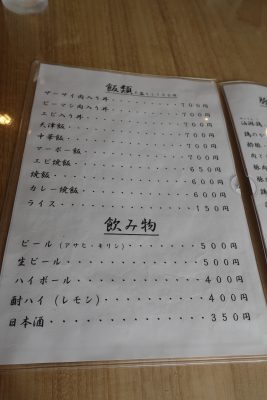 飯類
ザーサイ肉入り丼・・・・・・・・・700円
ピーマン肉入り丼・・・・・・・・・700円
エビ入り丼・・・・・・・・・・・・700円
天津飯・・・・・・・・・・・・・・700円
中華飯・・・・・・・・・・・・・・700円
マーボー飯・・・・・・・・・・・・700円
エビ焼飯・・・・・・・・・・・・・650円
焼飯・・・・・・・・・・・・・・・600円
カレー焼飯・・・・・・・・・・・・600円
ライス・・・・・・・・・・・・・・150円
飲み物
ビール（アサヒ・キリン）・・・・・500円
生ビール・・・・・・・・・・・・・500円
ハイボール・・・・・・・・・・・・400円
酎ハイ（レモン）・・・・・・・・・400円
日本酒・・・・・・・・・・・・・・350円